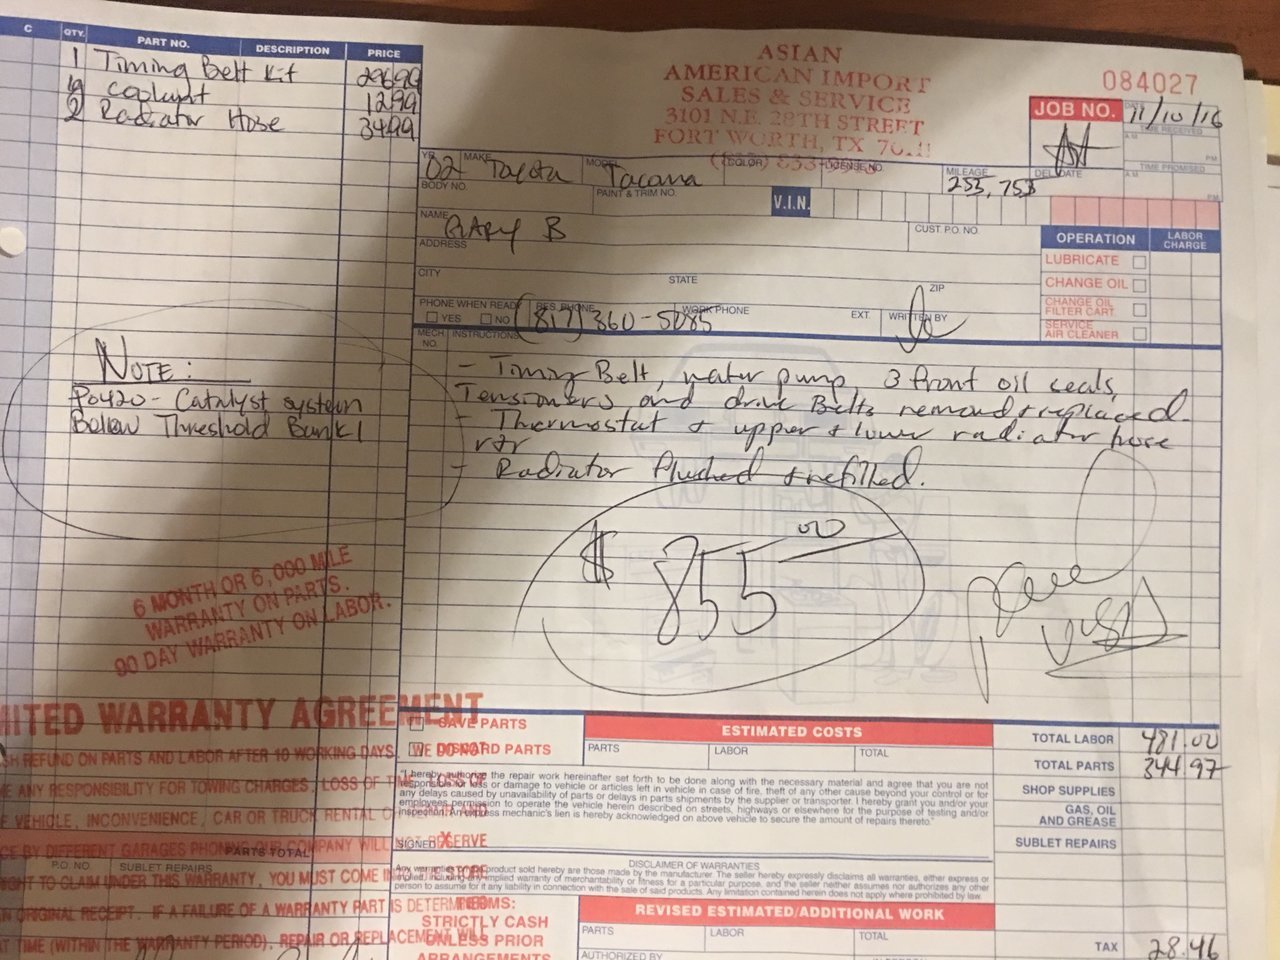 C QTY. PART NO. DESCRIPTION PRICE
1 Timing Belt Kit 296.99
coolant 12.99
2 Radiator Hose 34.99
ASIAN
AMERICAN IMPORT
SALES & SERVICE
3101 N.E. 28TH STREET
FORT WORTH, TX
084027
JOB NO.
DATE 11/10/16
TIME RECEIVED
A.M. P.M.
TIME PROMISED
A.M. P.M.
YR. 02 MAKE Tayota MODEL Tacoma COLOR LICENSE NO. MILEAGE 253,753 DEL. DATE
BODY NO. PAINT & TRIM NO. V.I.N.
NAME GARY B CUST. P.O. NO.
ADDRESS
CITY STATE ZIP
PHONE WHEN READY YES NO RES. PHONE (817) 360-5085 WORK PHONE EXT. WRITTEN BY
OPERATION LABOR CHARGE
LUBRICATE
CHANGE OIL
CHANGE OIL FILTER CART.
SERVICE AIR CLEANER
MECH. NO. INSTRUCTIONS
- Timing Belt, water pump, 3 front oil seals,
Tensioners and drive Belts removd + replaced.
- Thermostat + upper + lower radiator hose
r+r
- Radiator flushed + refilled.
NOTE:
P0420 - Catalyst system
Bellow Threshold Bank 1
$ 855.00
VISA
6 MONTH OR 6,000 MILE
WARRANTY ON PARTS.
90 DAY WARRANTY ON LABOR.
MITED WARRANTY AGREEMENT
SH REFUND ON PARTS AND LABOR AFTER 10 WORKING DAYS. WE DO NOT
E ANY RESPONSIBILITY FOR TOWING CHARGES, LOSS OF TIME, LOSS OF
E VEHICLE, INCONVENIENCE, CAR OR TRUCK RENTAL
CE BY DIFFERENT GARAGES PHONE. OUR COMPANY WILL NOT RESERVE
GHT TO CLAIM UNDER THIS WARRANTY, YOU MUST COME
N ORIGINAL RECEIPT. IF A FAILURE OF A WARRANTY PART IS DETERMI
AT TIME (WITHIN THE WARRANTY PERIOD), REPAIR OR REPLACEMENT WILL
PARTS TOTAL
P.O. NO. SUBLET REPAIRS
SAVE PARTS
DISCARD PARTS
ESTIMATED COSTS
PARTS LABOR TOTAL
"I hereby authorize the repair work hereinafter set forth to be done along with the necessary material and agree that you are not
responsible for loss or damage to vehicle or articles left in vehicle in case of fire, theft of any other cause beyond your control or for
any delays caused by unavailability of parts or delays in parts shipments by the supplier or transporter. I hereby grant you and/or your
employees permission to operate the vehicle herein described on streets, highways or elsewhere for the purpose of testing and/or
inspection. An express mechanic's lien is hereby acknowledged on above vehicle to secure the amount of repairs thereto."
SIGNED X
DISCLAIMER OF WARRANTIES
Any warranties on the product sold hereby are those made by the manufacturer. The seller hereby expressly disclaims all warranties, either express or
implied, including any implied warranty of merchantability or fitness for a particular purpose, and the seller neither assumes nor authorizes any other
person to assume for it any liability in connection with the sale of said products. Any limitation contained herein does not apply where prohibited by law.
TERMS:
STRICTLY CASH
UNLESS PRIOR
ARRANGEMENTS
REVISED ESTIMATED/ADDITIONAL WORK
PARTS LABOR TOTAL
AUTHORIZED BY
TOTAL LABOR 481.00
TOTAL PARTS 344.97
SHOP SUPPLIES
GAS, OIL AND GREASE
SUBLET REPAIRS
TAX 28.46